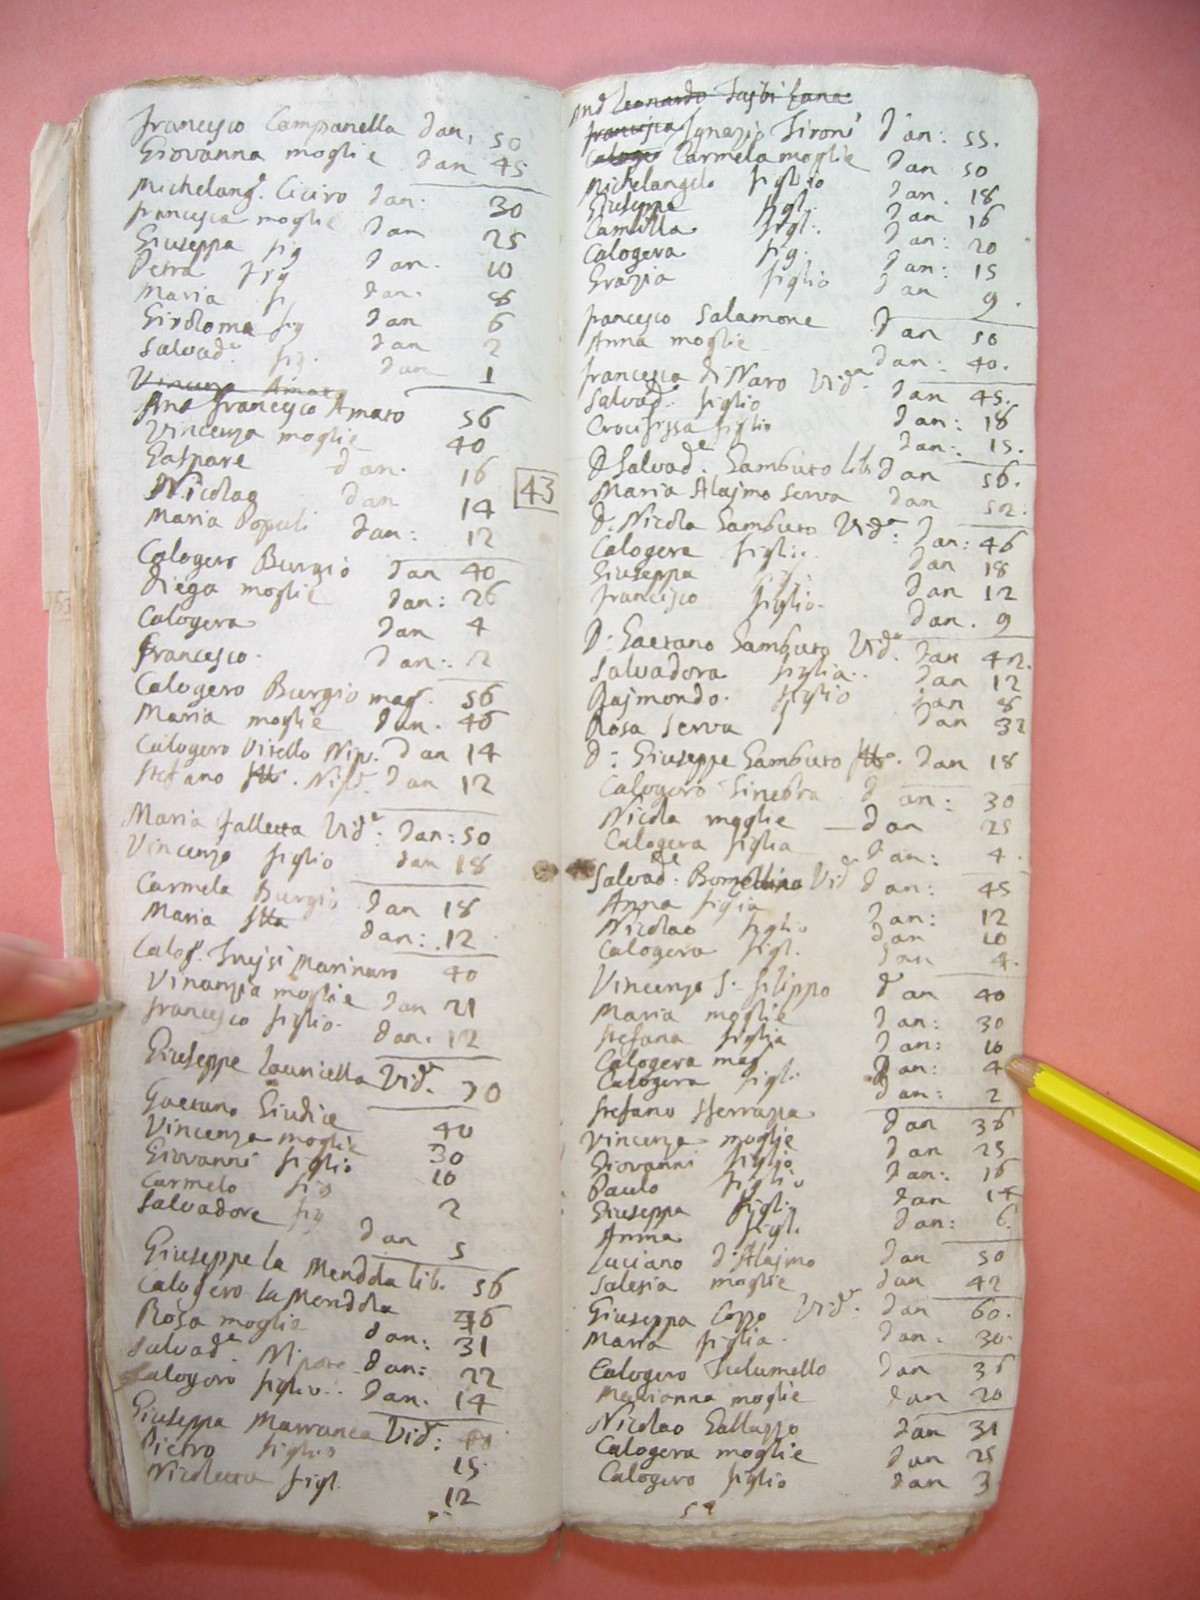 Francesco Campanella d'an: 50
Giovanna moglie d'an 45
Michelang.° Ciciro d'an: 30
francesca moglie d'an 25
Giuseppa fig d'an. 10
Petra fig d'an: 8
Maria fi d'an 6
Girolama fig d'an 2
Salvad.e fig. d'an 1
Vincenza Amato
Ana francesco Amato 56
Vincenza moglie 40
Gaspare d'an. 16
Nicolao d'an 14
Maria d'an: 12
Calogero Burgio d'an 40
Diega moglie d'an: 26
Calogera d'an 4
francesco. d'an: 2
Calogero Burgio mag. 56
Maria moglie d'an. 46
Calogero Vitello Nip. d'an 14
Stefano ftto. Nip. d'an 12
Maria falletta Vid.a: d'an: 50
Vincenzo figlio d'an 18
Carmela Burgio d'an 18
Maria ftta d'an: 12
Calog. Marinaro 40
Vincenza moglie d'an 21
francesco figlio. d'an. 12
Giuseppe Lauricella Vid.o 70
Gaetano Giudice 40
Vincenza moglie 30
Giovanni figlio 10
Carmelo fig 2
Salvadore fig d'an 5
Giuseppe la Mendola lib. 56
Calogero la Mendola 46
Rosa moglie d'an: 31
Salvad.e d'an: 22
Calogero figlio.. d'an. 14
Giuseppa Marranca Vid.a:
Pietro figlio 15
Nicoletta figl. 12
43
Leonardo
francesca Ignazio Tironi d'an: 55.
Calogero Carmela moglie d'an 50
Michelangelo figlio d'an. 18
Giuseppa figl. d'an 16
Camilla figl. d'an: 20
Calogera fig. d'an: 15
Grazia figlio d'an 9.
francesco Salamone d'an 50
Anna moglie d'an: 40.
francesca di Naro Vid.a d'an 45.
Salvad.e figlio d'an: 18
Crocifissa figlio d'an: 15.
D Salvad.e Gambuto lib d'an 56.
Maria Alajmo serva d'an 52.
D. Nicola Gambuto Vid.a: d'an: 46
Calogera figlia. d'an 18
Giuseppa d'an 12
francesco figlio. d'an. 9
D: Gaetano Gambuto Vid.o d'an 42.
Salvadora figlia.. d'an 12
Rajmondo. figlio d'an 8
Rosa Serva d'an 32
D: Giuseppe Gambuto ftto. d'an 18
Calogero Ginebra d'an: 30
Nicola moglie d'an 25
Calogera figlia d'an: 4.
Salvad.e Vid.a d'an: 45
Anna figlia d'an: 12
Nicolao figlio d'an 10
Calogera figl. d'an 4.
Vincenzo S. filippo d'an 40
Maria moglie d'an: 30
Stefana figlia d'an: 10
Calogera mag d'an: 4
Calogera figli. d'an: 2
Stefano Sferrazza d'an 36
Vincenza moglie d'an 25
Giovanni figlio d'an: 16
Paulo figlio d'an 14
Giuseppa figli. d'an: 6.
Anna figl.
Luciano d'Alajmo d'an 50
Salesia moglie d'an 42
Giuseppa Coppo Vid.a d'an 60.
Maria figlia. d'an. 30.
Calogero Tulumello d'an 36
Marianna moglie d'an 20
Nicolao Gallazzo d'an 31
Calogera moglie d'an 25
Calogero figlio d'an 3